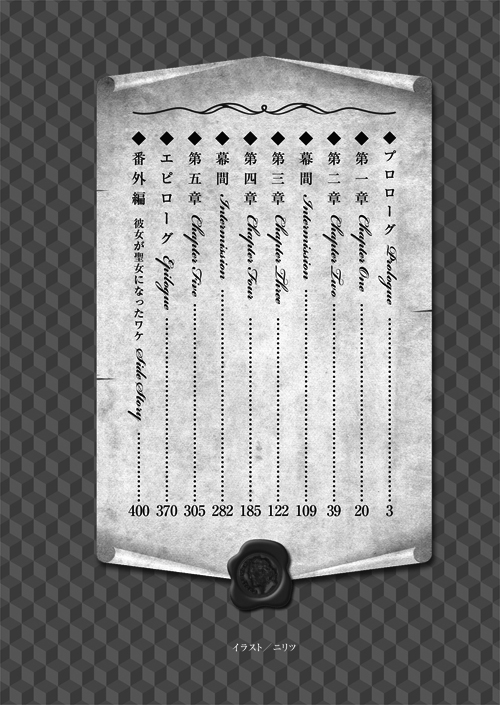 ◆プロローグ Prologue……3
◆第一章 Chapter One……20
◆第二章 Chapter Two……39
◆幕間 Intermission……109
◆第三章 Chapter Three……122
◆第四章 Chapter Four……185
◆幕間 Intermission……282
◆第五章 Chapter Five……305
◆エピローグ Epilogue……370
◆番外編 彼女が聖女になったワケ Side Story……400
イラスト/ニリツ